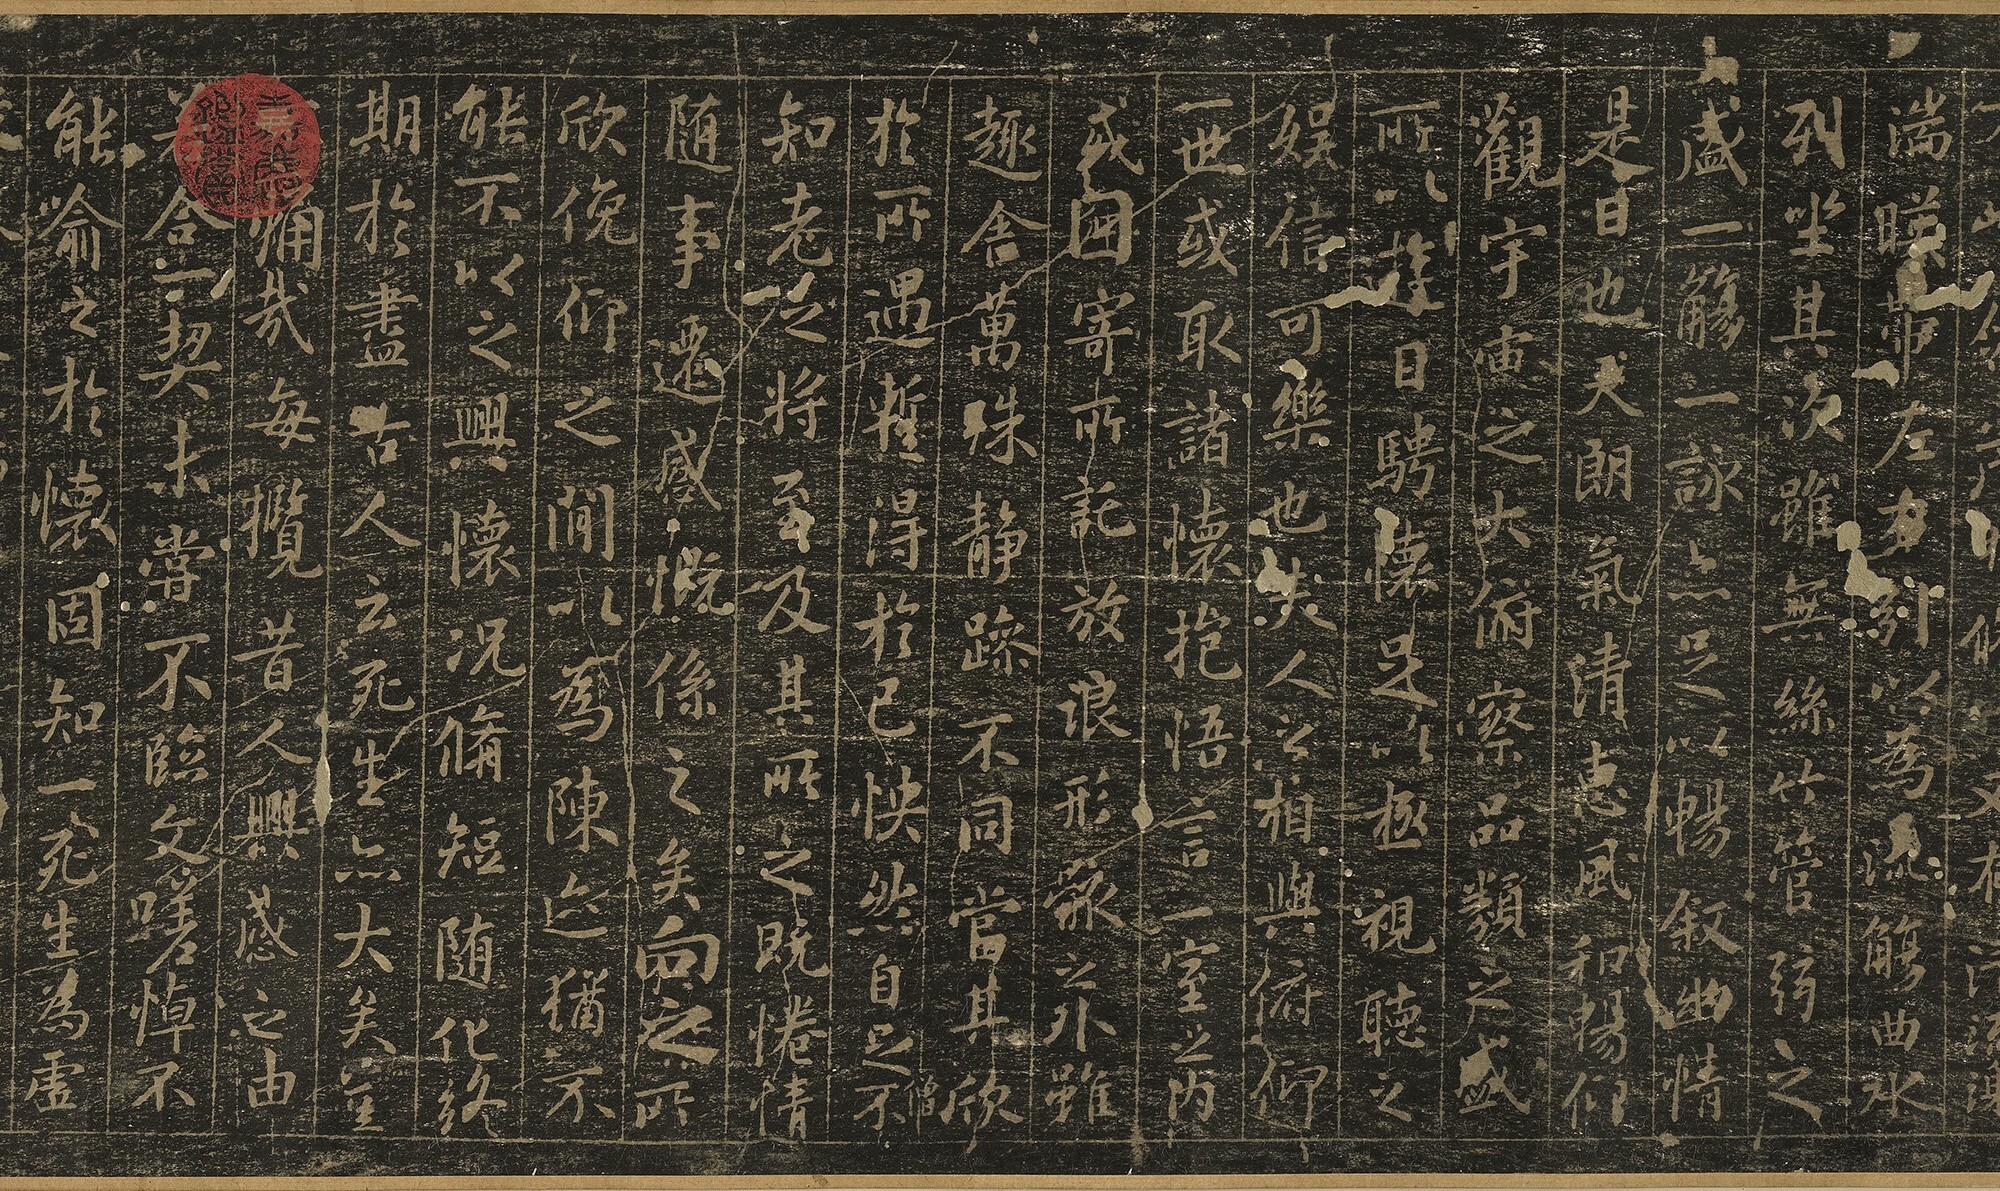 湍暎帶左右引以為流觴曲水
列坐其次雖無絲竹管弦之
盛一觴一詠亦足以暢敘幽情
是日也天朗氣清惠風和暢仰
觀宇宙之大俯察品類之盛
所以遊目騁懷足以極視聽之
娛信可樂也夫人之相與俯仰
一世或取諸懷抱悟言一室之內
或因寄所託放浪形骸之外雖
趣舍萬殊靜躁不同當其欣
僧
於所遇蹔得於己怏然自足不
知老之將至及其所之既惓情
隨事遷感慨係之矣向之所
欣俛仰之閒以為陳迹猶不
能不以之興懷況脩短隨化終
期於盡古人云死生亦大矣豈
痛哉每攬昔人興感之由
若合一契未嘗不臨文嗟悼不
能喻之於懷固知一死生為虛